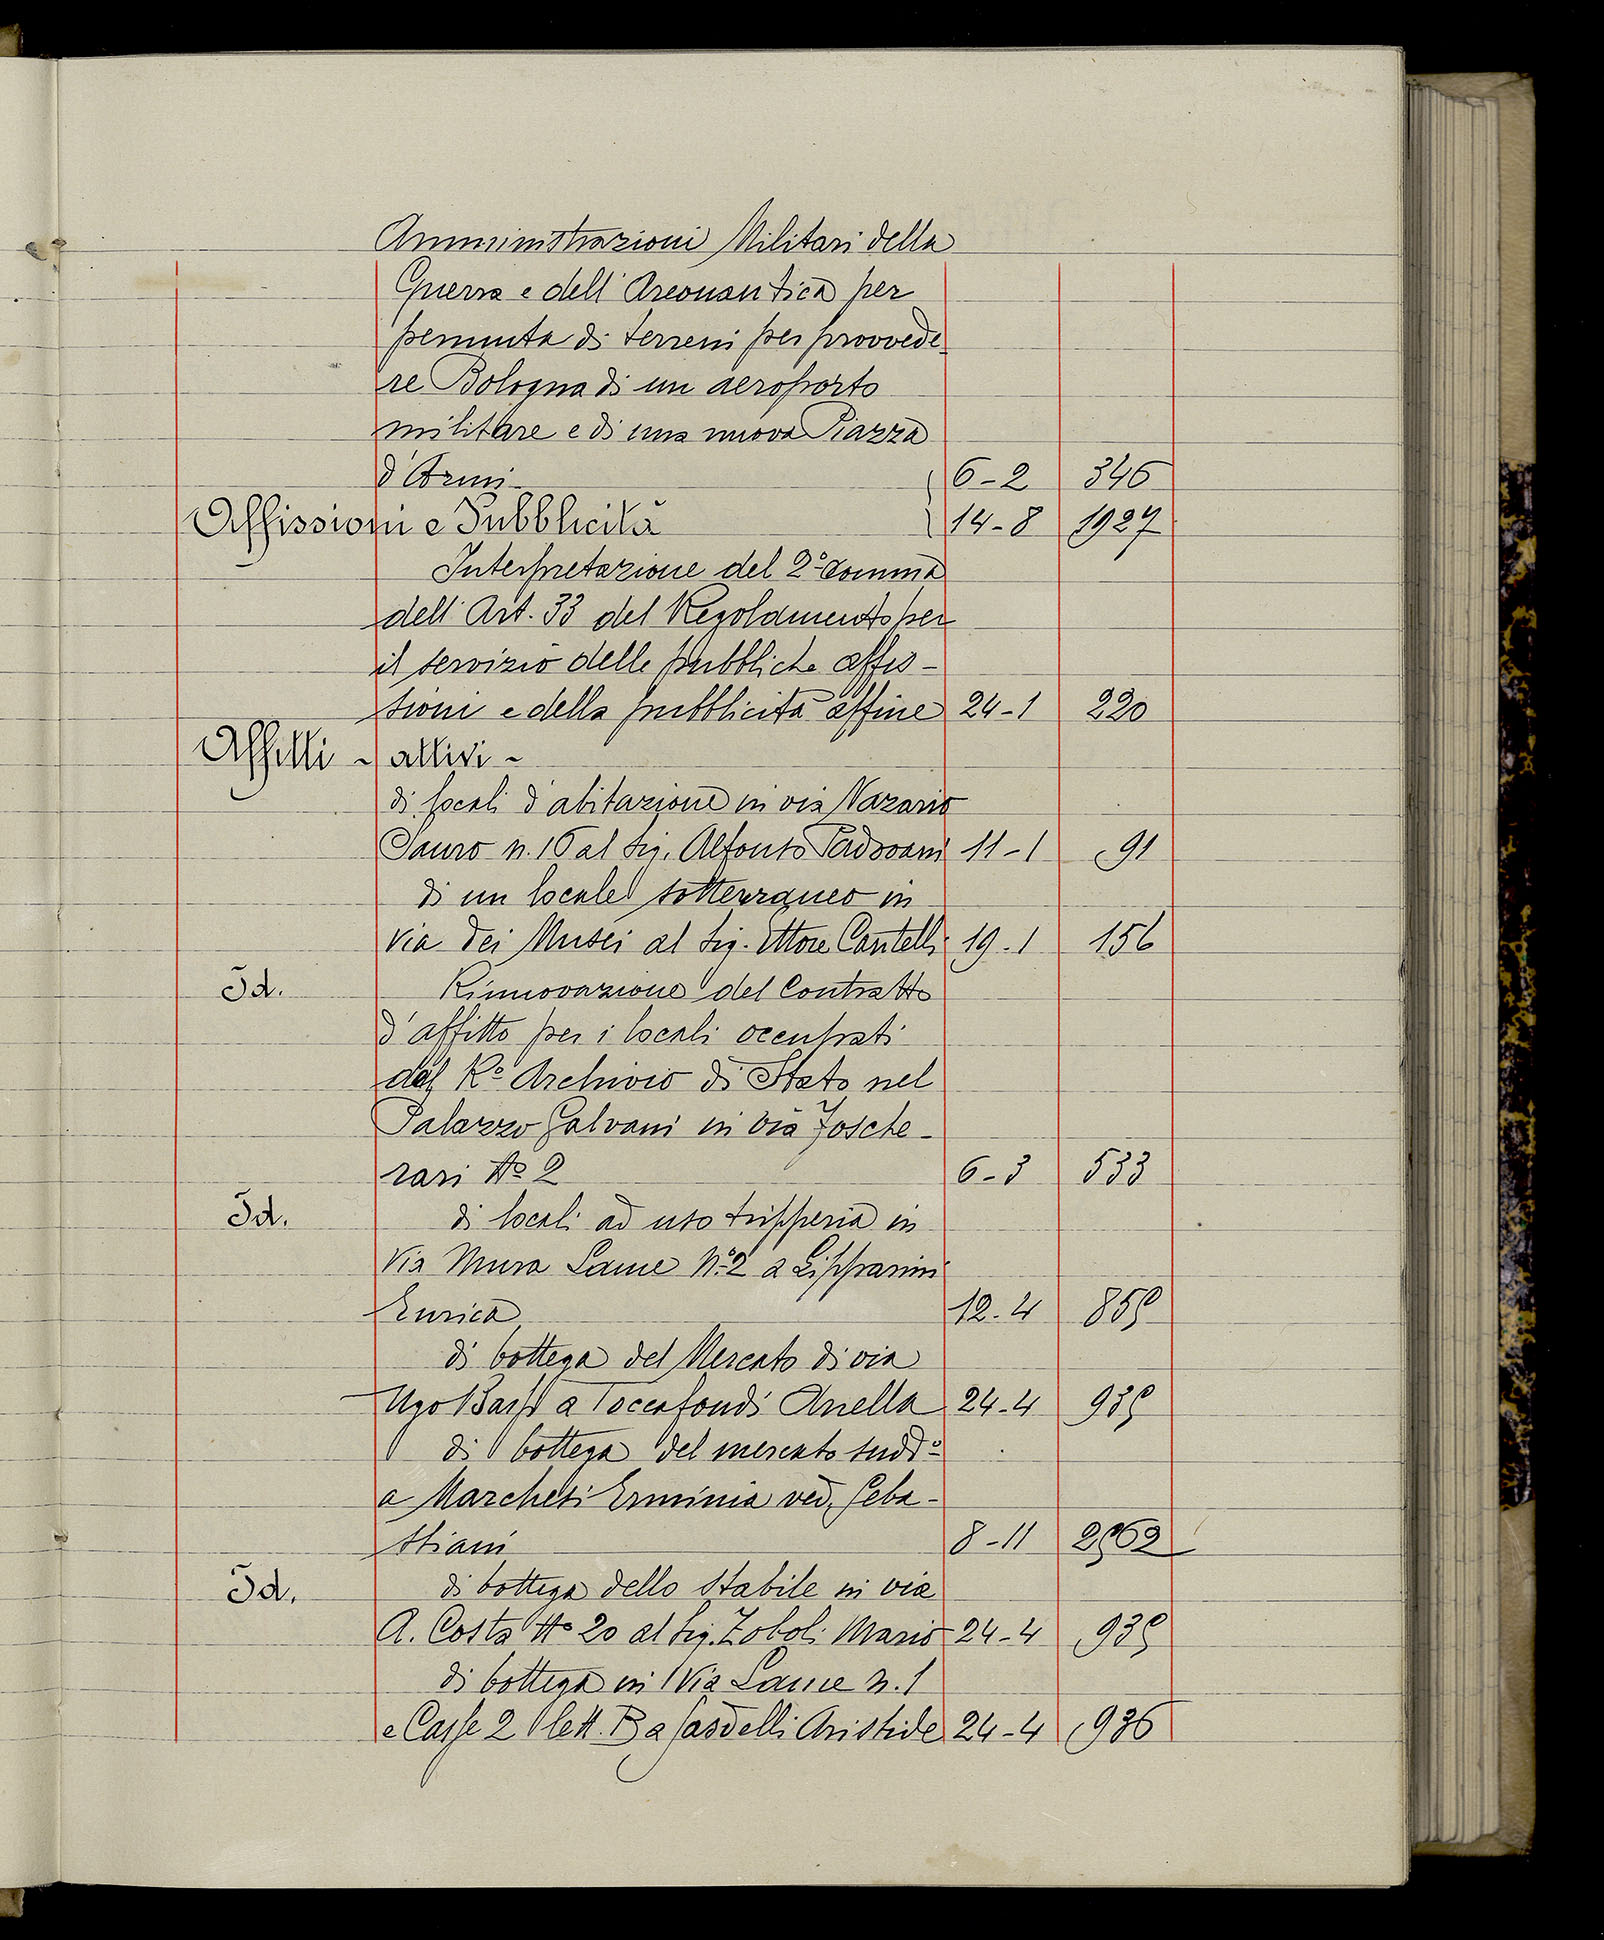 Amministrazioni Militari della
Guerra e dell'Areonautica per
permuta di terreni per provvede-
re Bologna di un aeroporto
militare e di una nuova Piazza
d'Armi 6-2 346
Affissioni e Pubblicità 14-8 1927
Interpretazione del 2° comma
dell'Art. 33 del Regolamento per
il servizio delle pubbliche affis-
sioni e della pubblicità affine 24-1 220
Affitti - attivi -
di locali d'abitazione in via Nazario
Sauro n. 16 al Sig. Alfonso Padovani 11-1 91
di un locale sotterraneo in
Via dei Musei al Sig. Ettore Cantelli 19-1 156
Id. Rinnovazione del Contratto
d'affitto per i locali occupati
dal R° Archivio di Stato nel
Palazzo Galvani in via Fosche-
rari N° 2 6-3 533
Id. di locali ad uso tripperia in
Via Mura Lame N° 2 a Lipparini
Enrica 12-4 859
di bottega del Mercato di via
Ugo Bassi a Toccafondi Anella 24-4 939
di bottega del mercato sudd°
a Marchesi Erminia ved. Seba-
stiani 8-11 2962
Id. di bottega dello stabile in via
A. Costa N° 20 al Sig. Zoboli Mario 24-4 939
di bottega in Via Lame n. 1
e Casse 2 lett. B a Sardelli Aristide 24-4 936